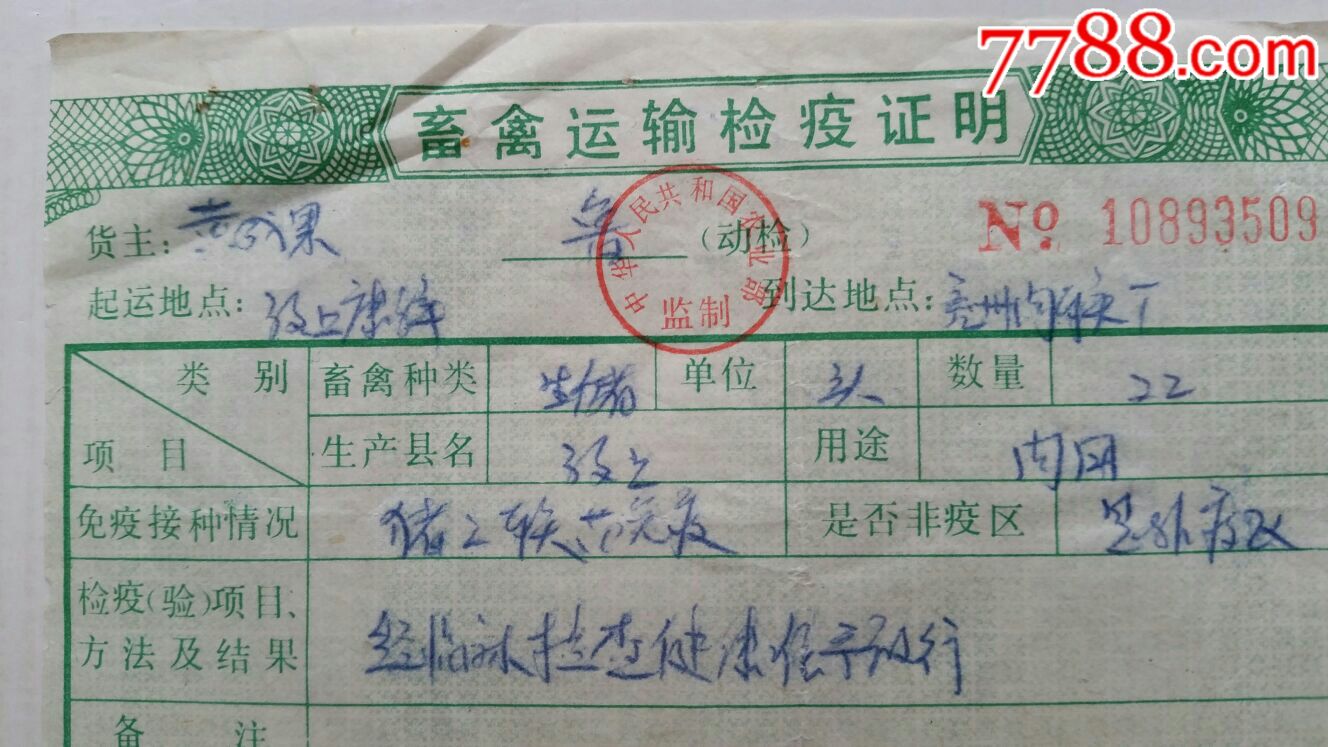 7788.com
畜禽运输检疫证明
货主: 黄成果 鲁 (动检) No 10893509
中华人民共和国农业部 监制
起运地点: 汶上康驿 到达地点: 兖州肉联厂
类别 畜禽种类 生猪 单位 头 数量 22
项目 生产县名 汶上 用途 肉用
免疫接种情况 猪三联苗免疫 是否非疫区 是非疫区
检疫(验)项目、 经临床检查健康准予放行
方法及结果
备注